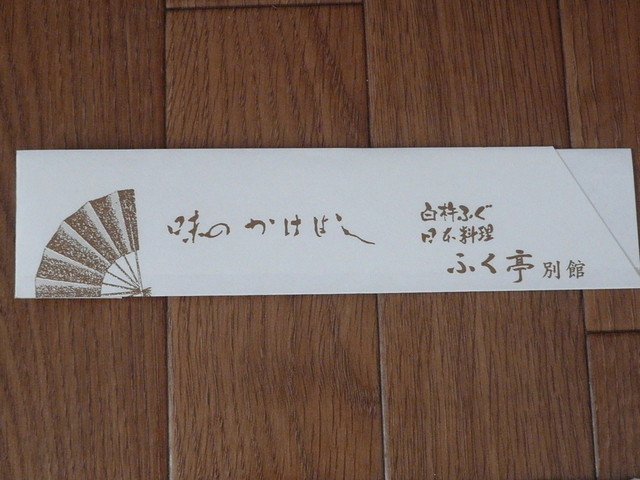 味のかけはし
臼杵ふぐ
日本料理
ふく亭 別館